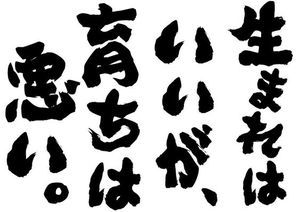 生まれは
いいが、
育ちは
悪い。